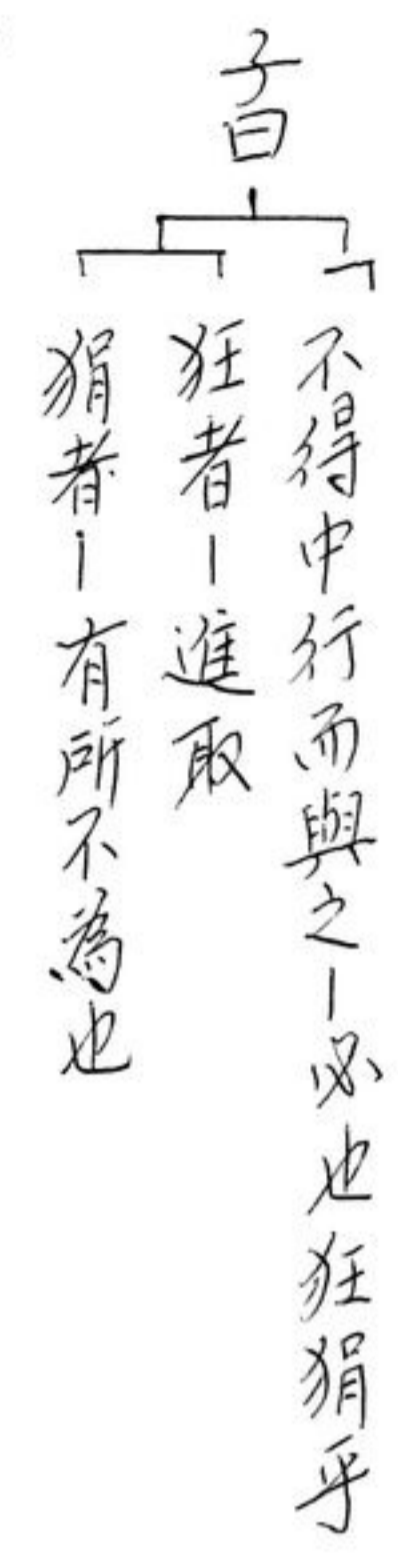 子曰
「不得中行而與之－必也狂狷乎
狂者－進取
狷者－有所不為也